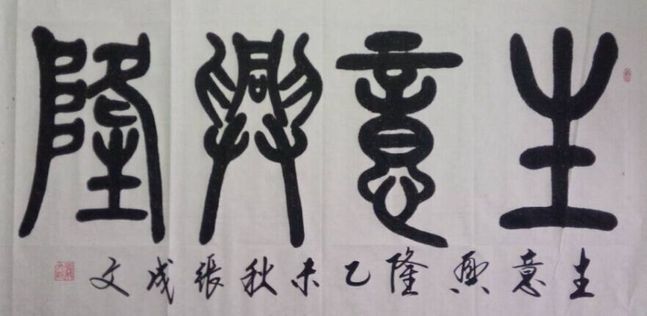 生意興隆
生意興隆乙未秋張成文